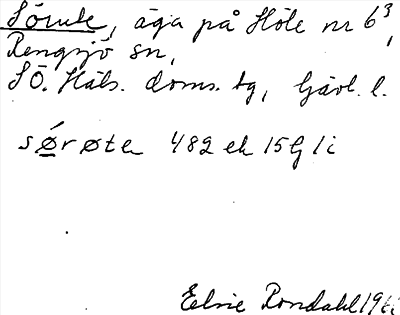 Sörute, äga på Höle nr 6³,
Rengsjö sn,
SÖ. Häls. doms. tg, Gävl. l.
sǿrøte 482 ek 15G 1i
Elsie Rondahl 196